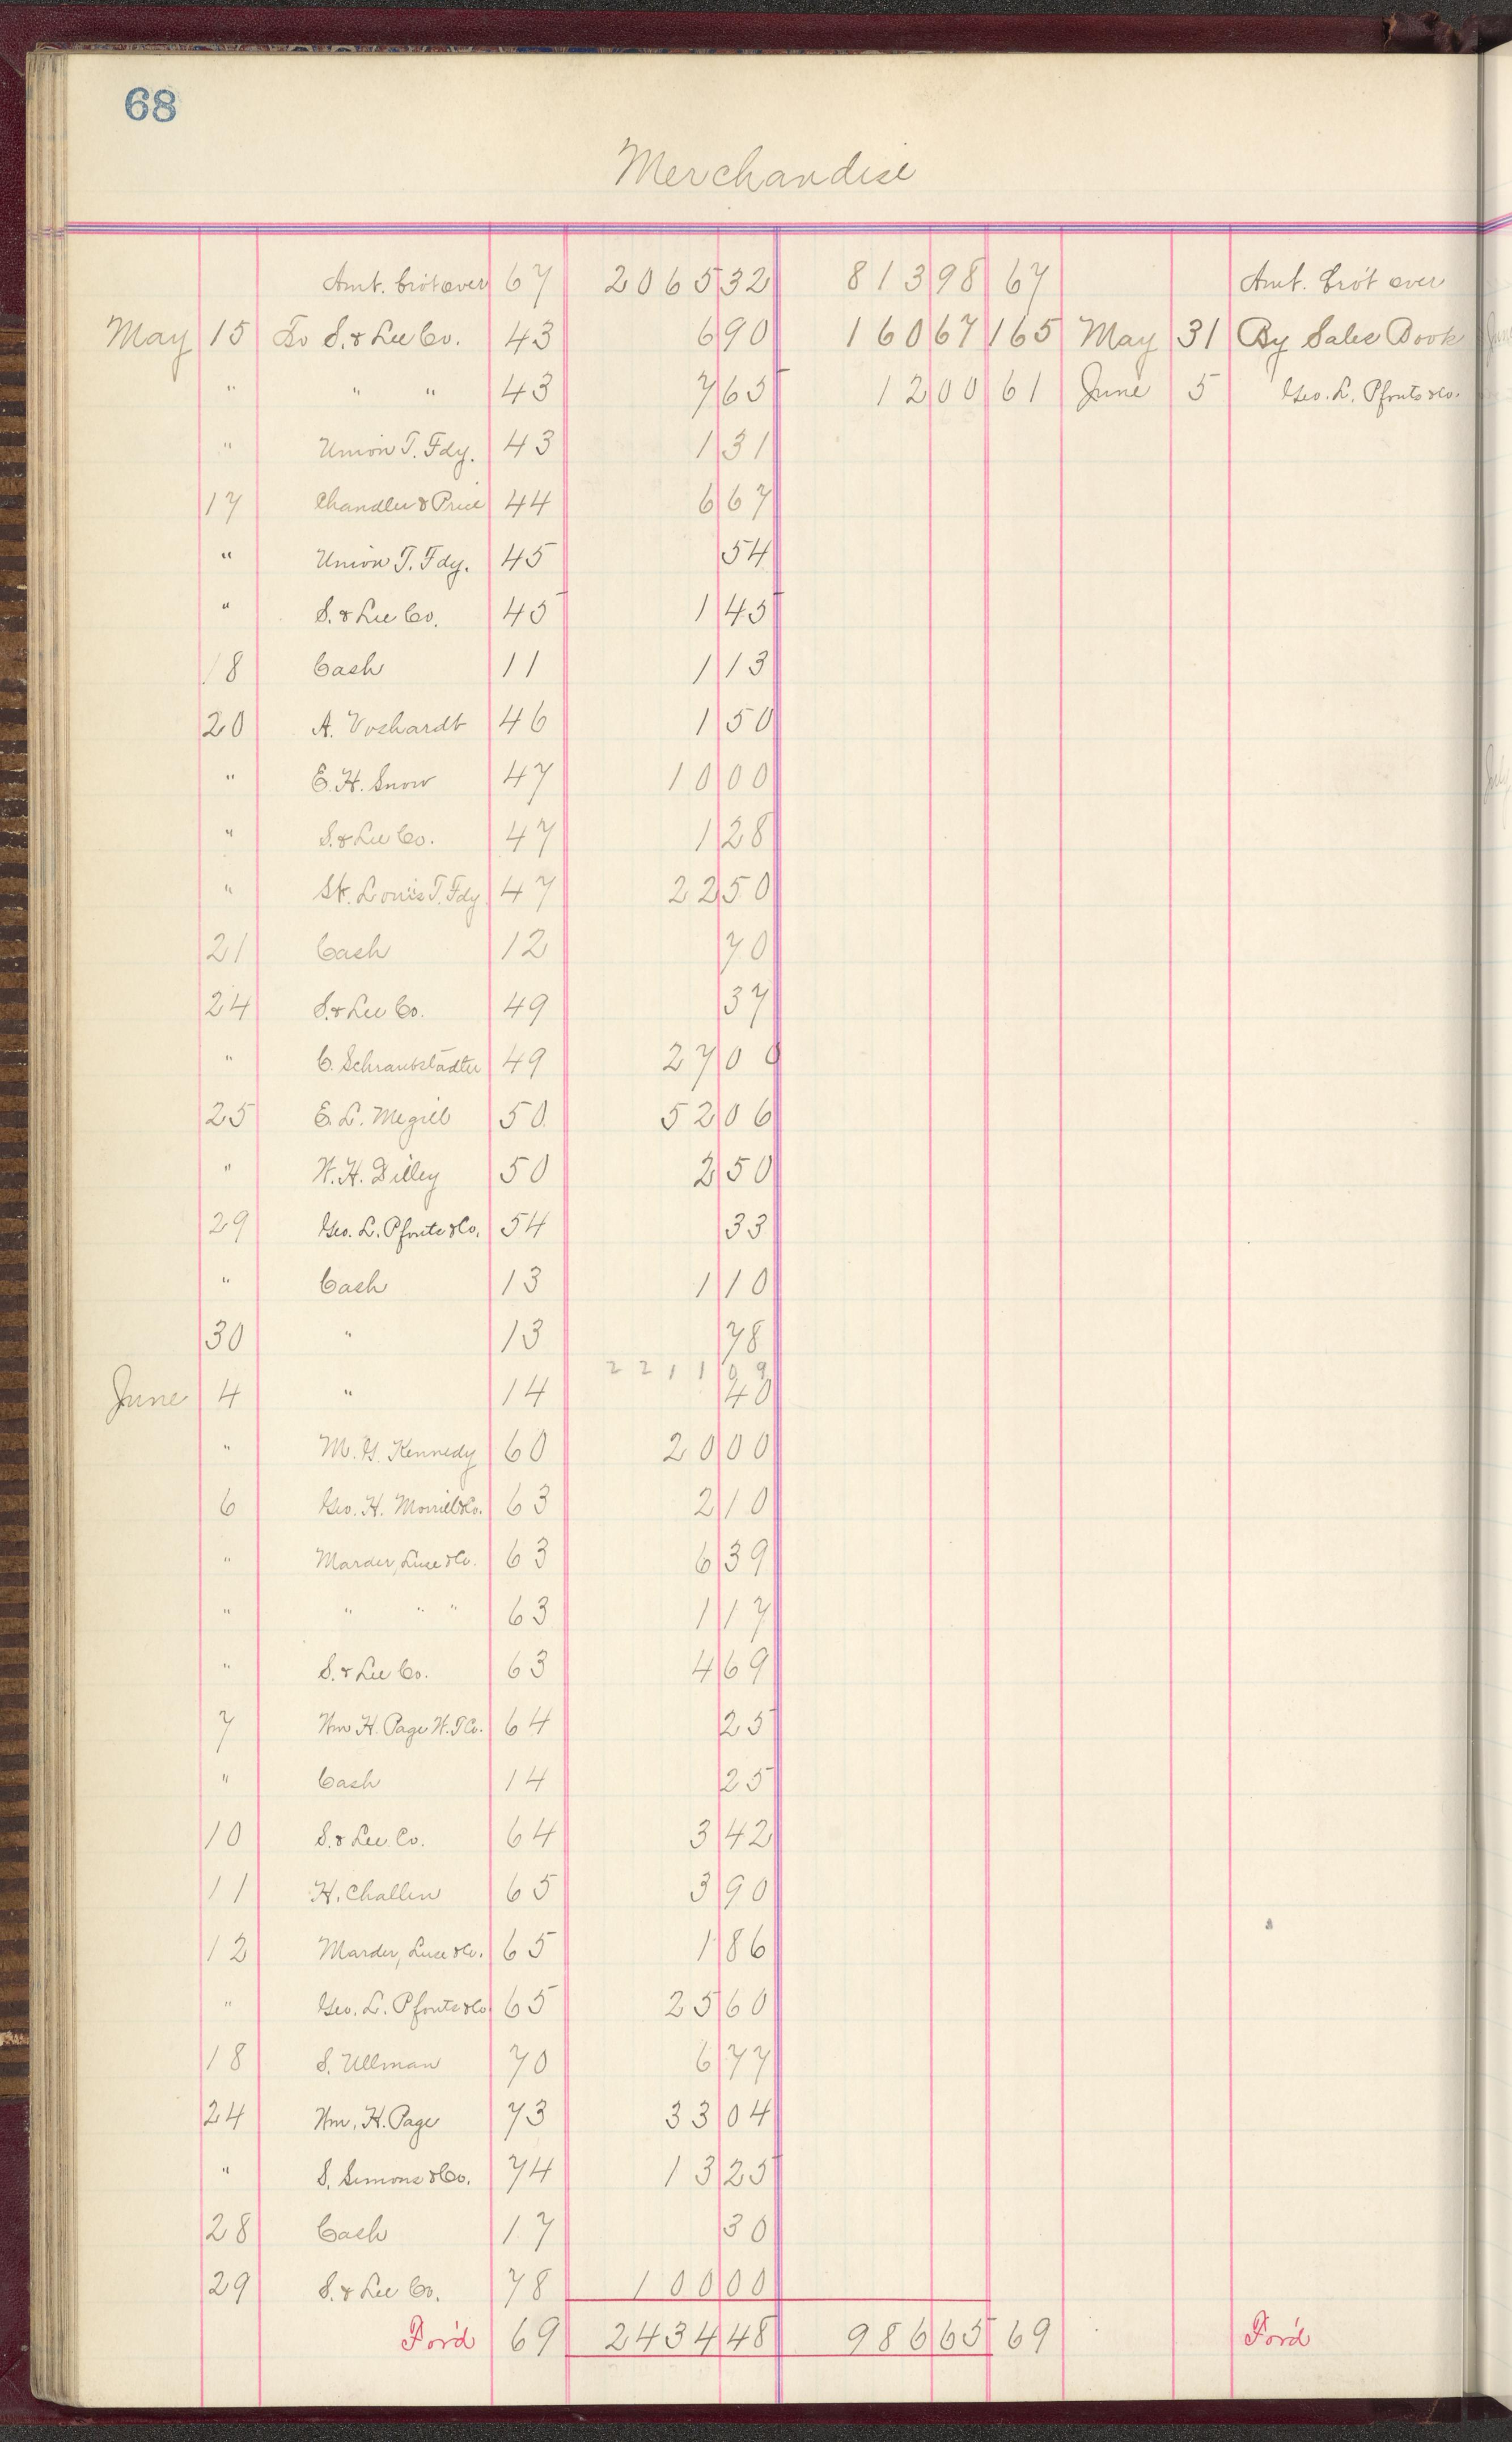 68
Merchandise
Amt. bro't over 67 2065 32 813 98 67 Amt. bro't over
May 15 To S. & Lee Co. 43 6 90 160 67 165 May 31 By Sales Book
" " " 43 7 65 12 00 61 June 5 Geo. L. Pfouts & Co.
" Union T. Fdy. 43 1 31
17 Chandler & Price 44 6 67
" Union T. Fdy. 45 54
" S. & Lee Co. 45 1 45
18 Cash 11 1 13
20 A. Voshardt 46 1 50
" E. H. Snow 47 10 00
" S. & Lee Co. 47 1 28
" St. Louis T. Fdy. 47 22 50
21 Cash 12 70
24 S. & Lee Co. 49 37
" C. Schraubstädter 49 27 00
25 E. L. Megill 50 52 06
" W. H. Dilley 50 2 50
29 Geo. L. Pfouts & Co. 54 33
" Cash 13 1 10
30 " 13 78
2211 09
June 4 " 14 40
" M. G. Kennedy 60 20 00
6 Geo. H. Morrill & Co. 63 2 10
" Marder, Luse & Co. 63 6 39
" " " " 63 1 17
" S. & Lee Co. 63 4 69
7 Wm H. Page W. T Co. 64 25
" Cash 14 25
10 S. & Lee Co. 64 3 42
11 H. Challen 65 3 90
12 Marder, Luse & Co. 65 1 86
" Geo. L. Pfouts & Co 65 25 60
18 S. Ullman 70 6 77
24 Wm. H. Page 73 33 04
" S. Simons & Co. 74 13 25
28 Cash 17 30
29 S. & Lee Co. 78 100 00
For'd 69 2434 48 986 65 69 For'd